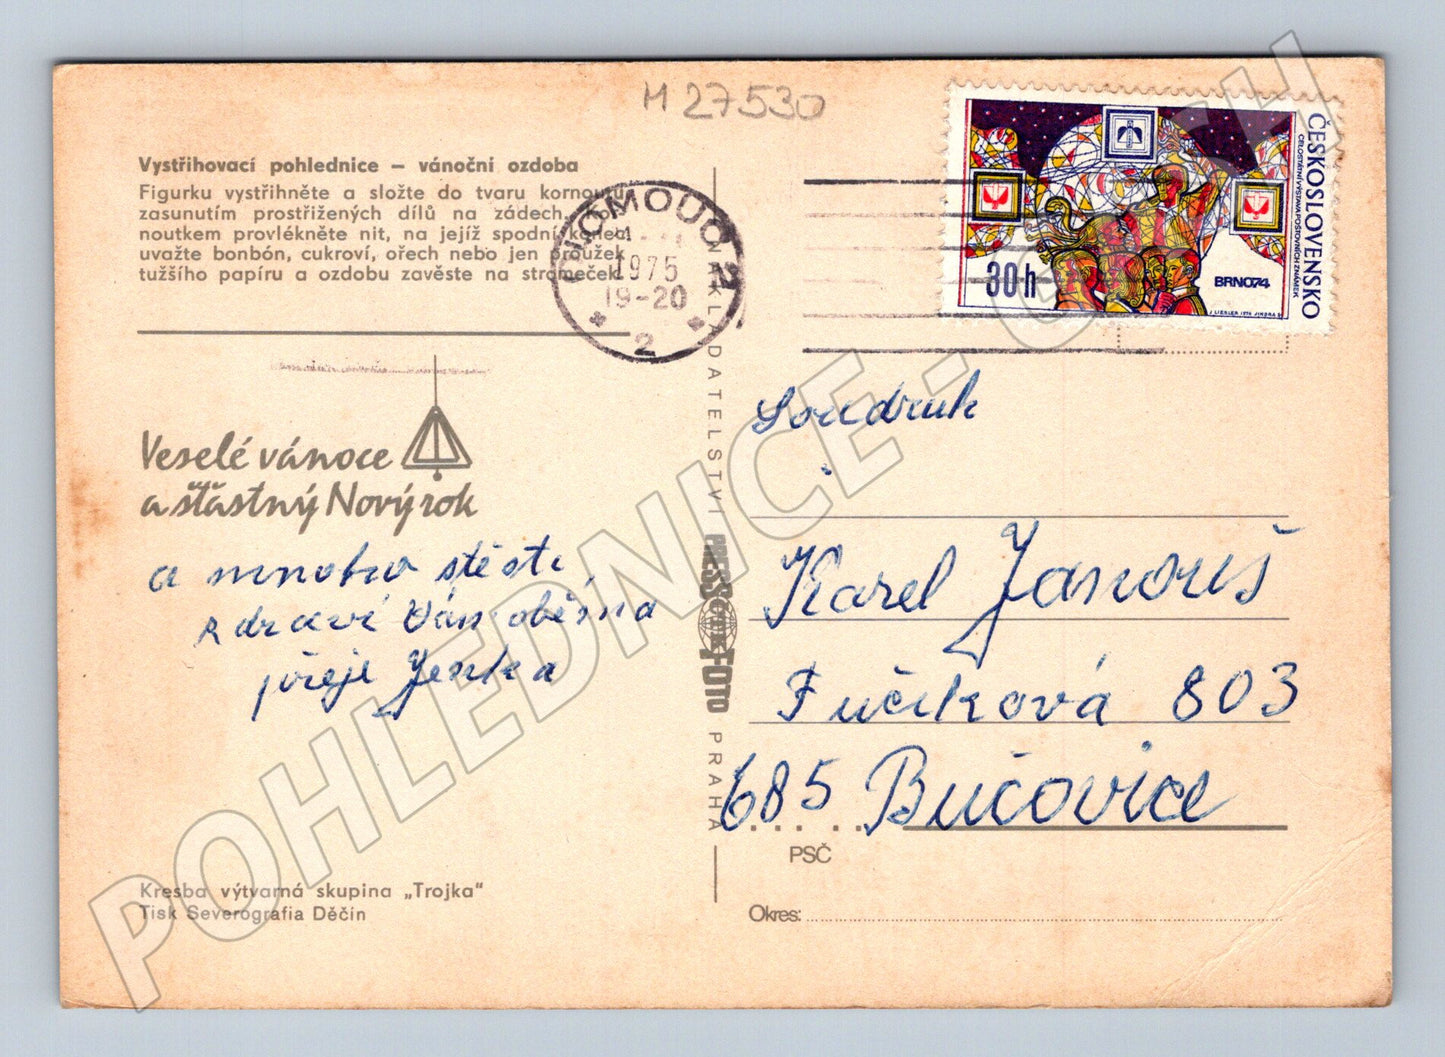 M 27530
Vystřihovací pohlednice – vánoční ozdoba
Figurku vystřihněte a složte do tvaru kornoutu
zasunutím prostřižených dílů na zádech.
noutkem provlékněte nit, na jejíž spodní konec
uvažte bonbón, cukroví, ořech nebo jen proužek
tužšího papíru a ozdobu zavěste na stromeček.
OLOMOUC 2
1975
19-20
2
ČESKOSLOVENSKO
CELOSTÁTNÍ VÝSTAVA POŠTOVNÍCH ZNÁMEK
BRNO74
30 h
J. LIESLER 1974 JINDRA S.
Veselé vánoce
a šťastný Nový rok
a mnoho štěstí,
zdraví Vám oběma
přeje Jenka
Soudruh
Karel Janouš
Fučíková 803
685 Bučovice
PSČ
Okres:
NAKLADATELSTVÍ PRESSFOTO PRAHA
Kresba výtvarná skupina „Trojka"
Tisk Severografia Děčín
POHLEDNICE - CECH